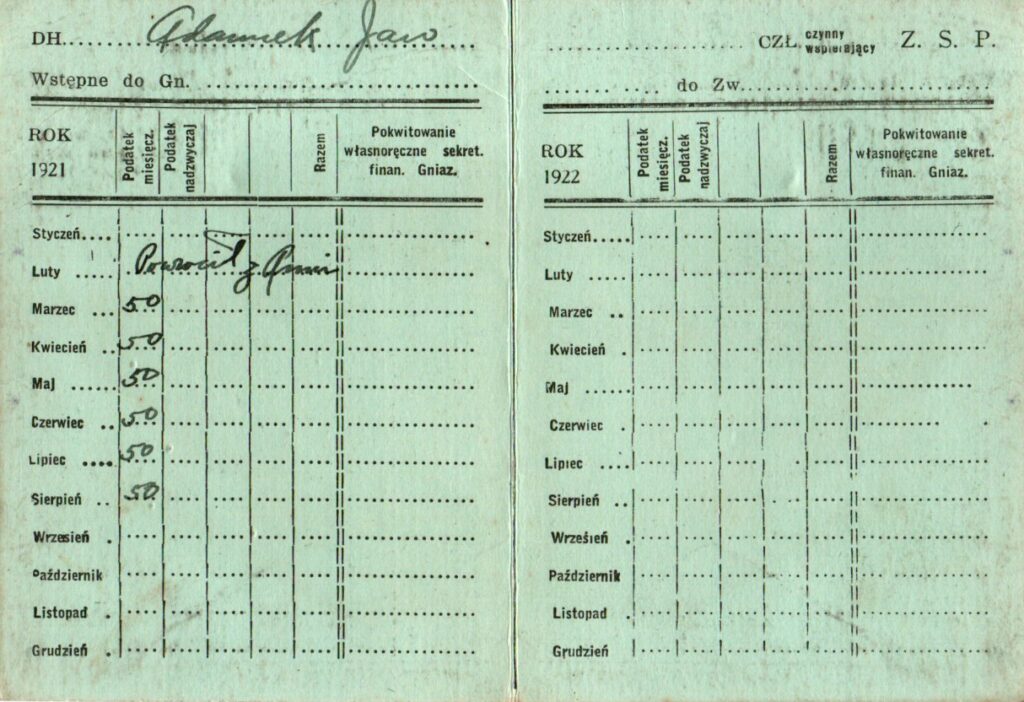 DH. Adamek Jan
Wstępne do Gn.
ROK
1921
Podatek miesięcz.
Podatek nadzwyczaj
Razem
Pokwitowanie
własnoręczne sekret.
finan. Gniaz.
Styczeń
Luty Powrócił z Armii
Marzec 50
Kwiecień 50
Maj 50
Czerwiec 50
Lipiec 50
Sierpień 50
Wrzesień
Październik
Listopad
Grudzień
CZŁ. czynny wspierający Z. S. P.
do Zw.
ROK
1922
Podatek miesięcz.
Podatek nadzwyczaj
Razem
Pokwitowanie
własnoręczne sekret.
finan. Gniaz.
Styczeń
Luty
Marzec
Kwiecień
Maj
Czerwiec
Lipiec
Sierpień
Wrzesień
Październik
Listopad
Grudzień